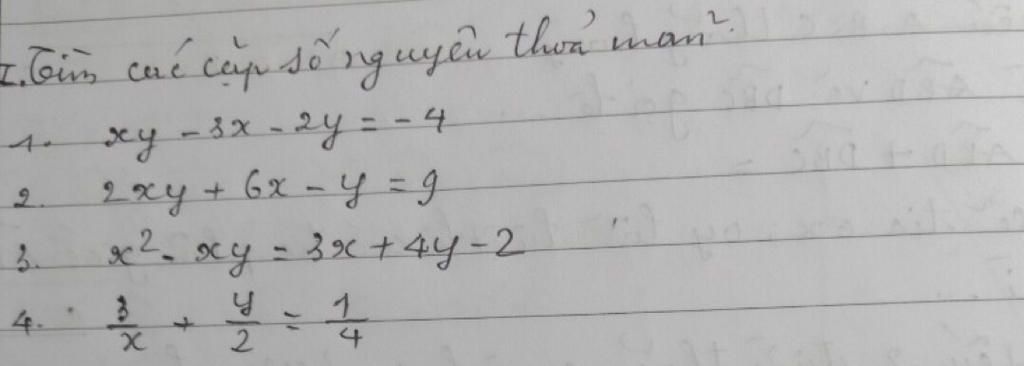 I. Tìm các cặp số nguyên thoả mãn:
1. xy - 3x - 2y = -4
2. 2xy + 6x - y = 9
3. x² - xy = 3x + 4y - 2
4. 3/x + y/2 = 1/4